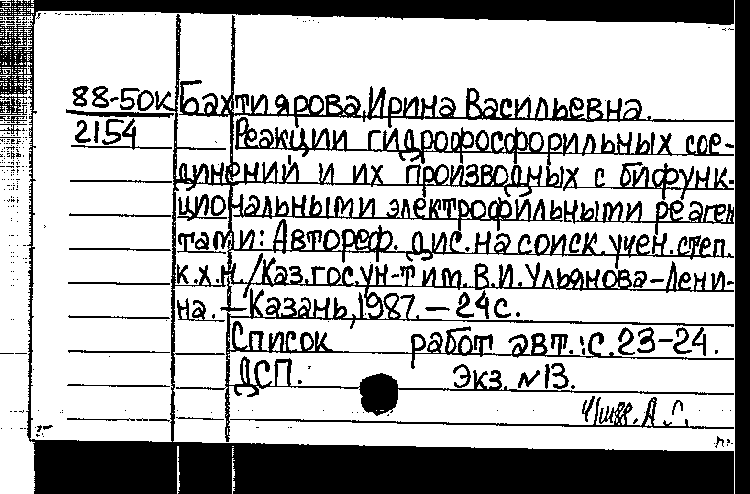 88-50к Бахтиярова, Ирина Васильевна.
2154 Реакции гидрофосфорильных сое-
динений и их производных с бифунк-
циональными электрофильными реаген
тами: Автореф. дис. на соиск. учен. степ.
к.х.н./Каз. гос. ун-т им. В.И. Ульянова-Лени-
на. – Казань, 1987. – 24 с.
Список работ авт.: с. 23-24.
ДСП. Экз. №13.